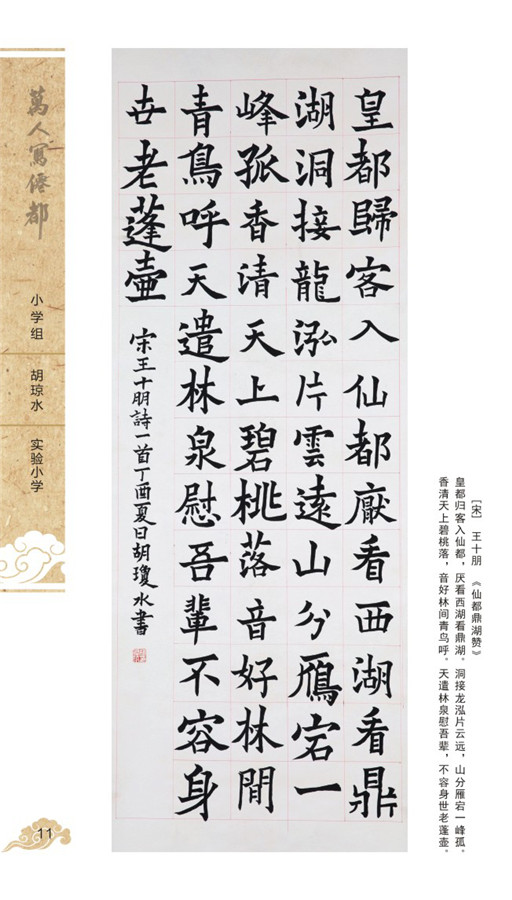 萬人寫僊都
小学组
胡琼水
实验小学
11
皇都歸客入仙都厭看西湖看鼎
湖洞接龍泓片雲遠山分雁宕一
峰孤香清天上碧桃落音好林間
青鳥呼天遣林泉慰吾輩不容身
世老蓬壺
宋王十朋詩一首丁酉夏日胡瓊水書
[宋] 王十朋 《仙都鼎湖赞》
皇都归客入仙都，厌看西湖看鼎湖。洞接龙泓片云远，山分雁宕一峰孤。
香清天上碧桃落，音好林间青鸟呼。天遣林泉慰吾辈，不容身世老蓬壶。